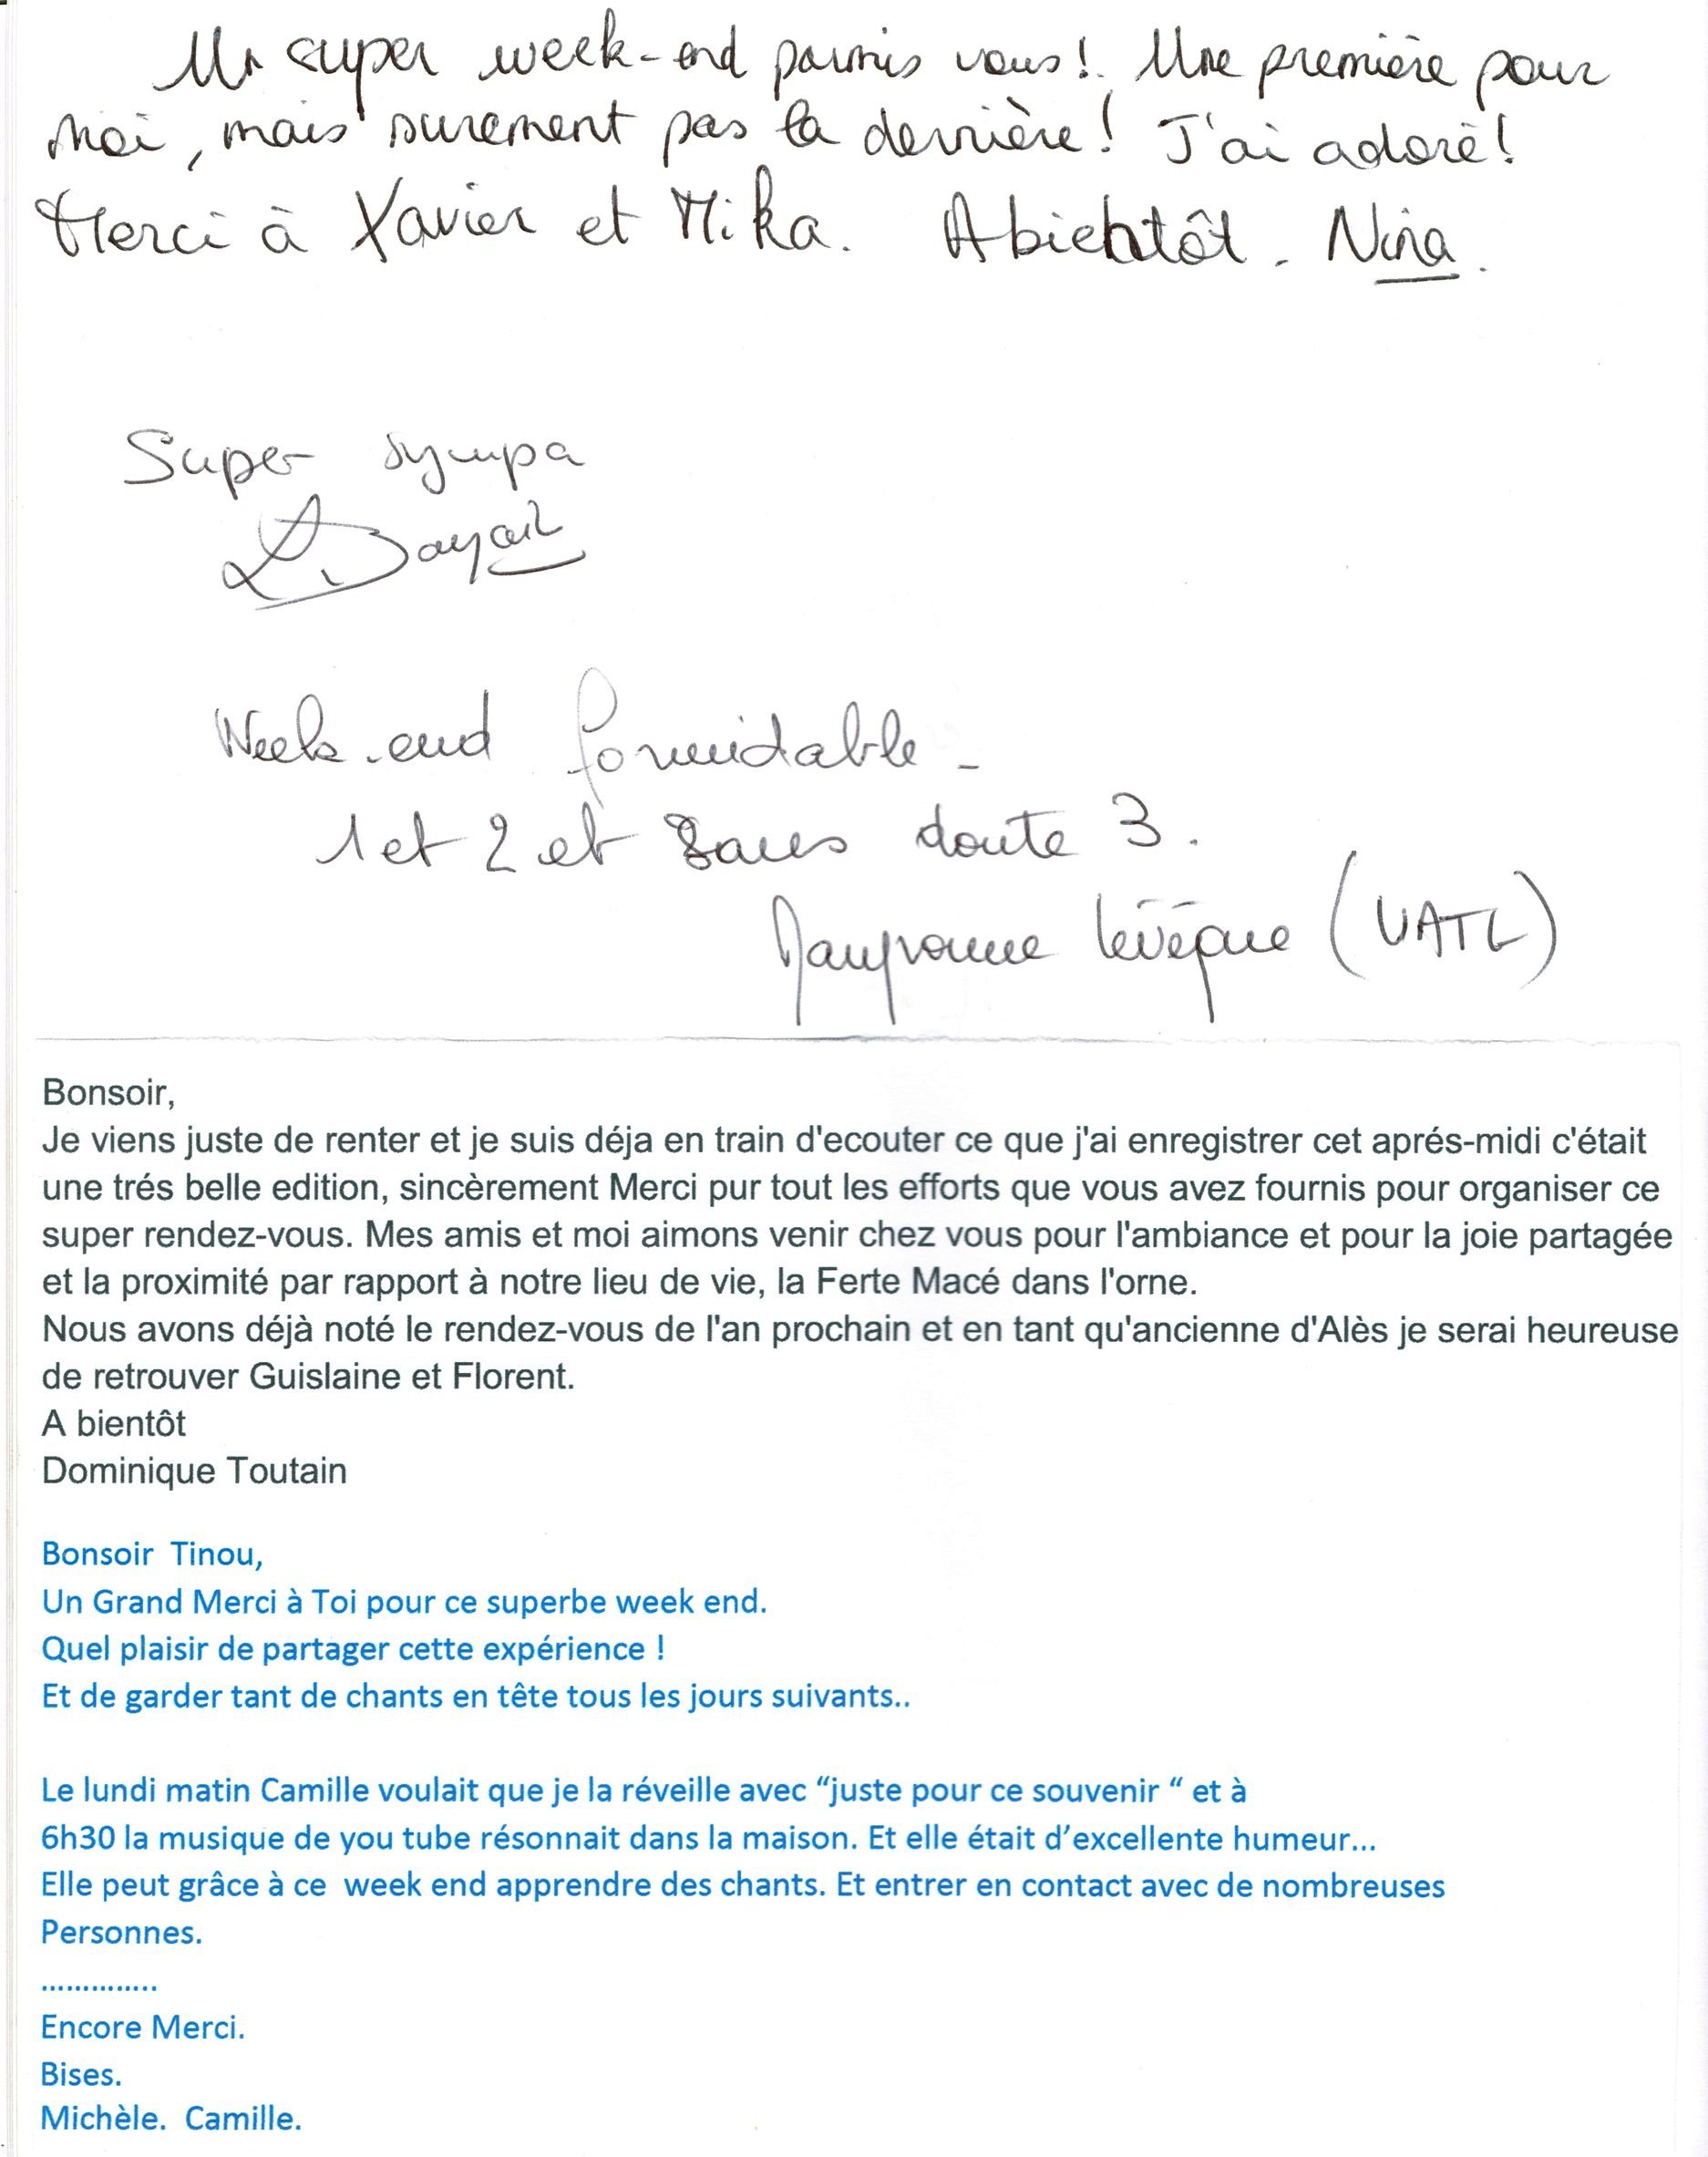 Un super week-end parmis vous! Une première pour
moi, mais surement pas la dernière! J'ai adoré!
Merci à Xavier et Mika. A bientôt. Nina.
Super sympa
Week-end formidable -
1 et 2 et sans doute 3.
Lévêque (UATL)
Bonsoir,
Je viens juste de renter et je suis déja en train d'ecouter ce que j'ai enregistrer cet aprés-midi c'était
une trés belle edition, sincèrement Merci pur tout les efforts que vous avez fournis pour organiser ce
super rendez-vous. Mes amis et moi aimons venir chez vous pour l'ambiance et pour la joie partagée
et la proximité par rapport à notre lieu de vie, la Ferte Macé dans l'orne.
Nous avons déjà noté le rendez-vous de l'an prochain et en tant qu'ancienne d'Alès je serai heureuse
de retrouver Guislaine et Florent.
A bientôt
Dominique Toutain
Bonsoir  Tinou,
Un Grand Merci à Toi pour ce superbe week end.
Quel plaisir de partager cette expérience !
Et de garder tant de chants en tête tous les jours suivants..
Le lundi matin Camille voulait que je la réveille avec “juste pour ce souvenir “ et à
6h30 la musique de you tube résonnait dans la maison. Et elle était d’excellente humeur…
Elle peut grâce à ce  week end apprendre des chants. Et entrer en contact avec de nombreuses
Personnes.
…………..
Encore Merci.
Bises.
Michèle.  Camille.